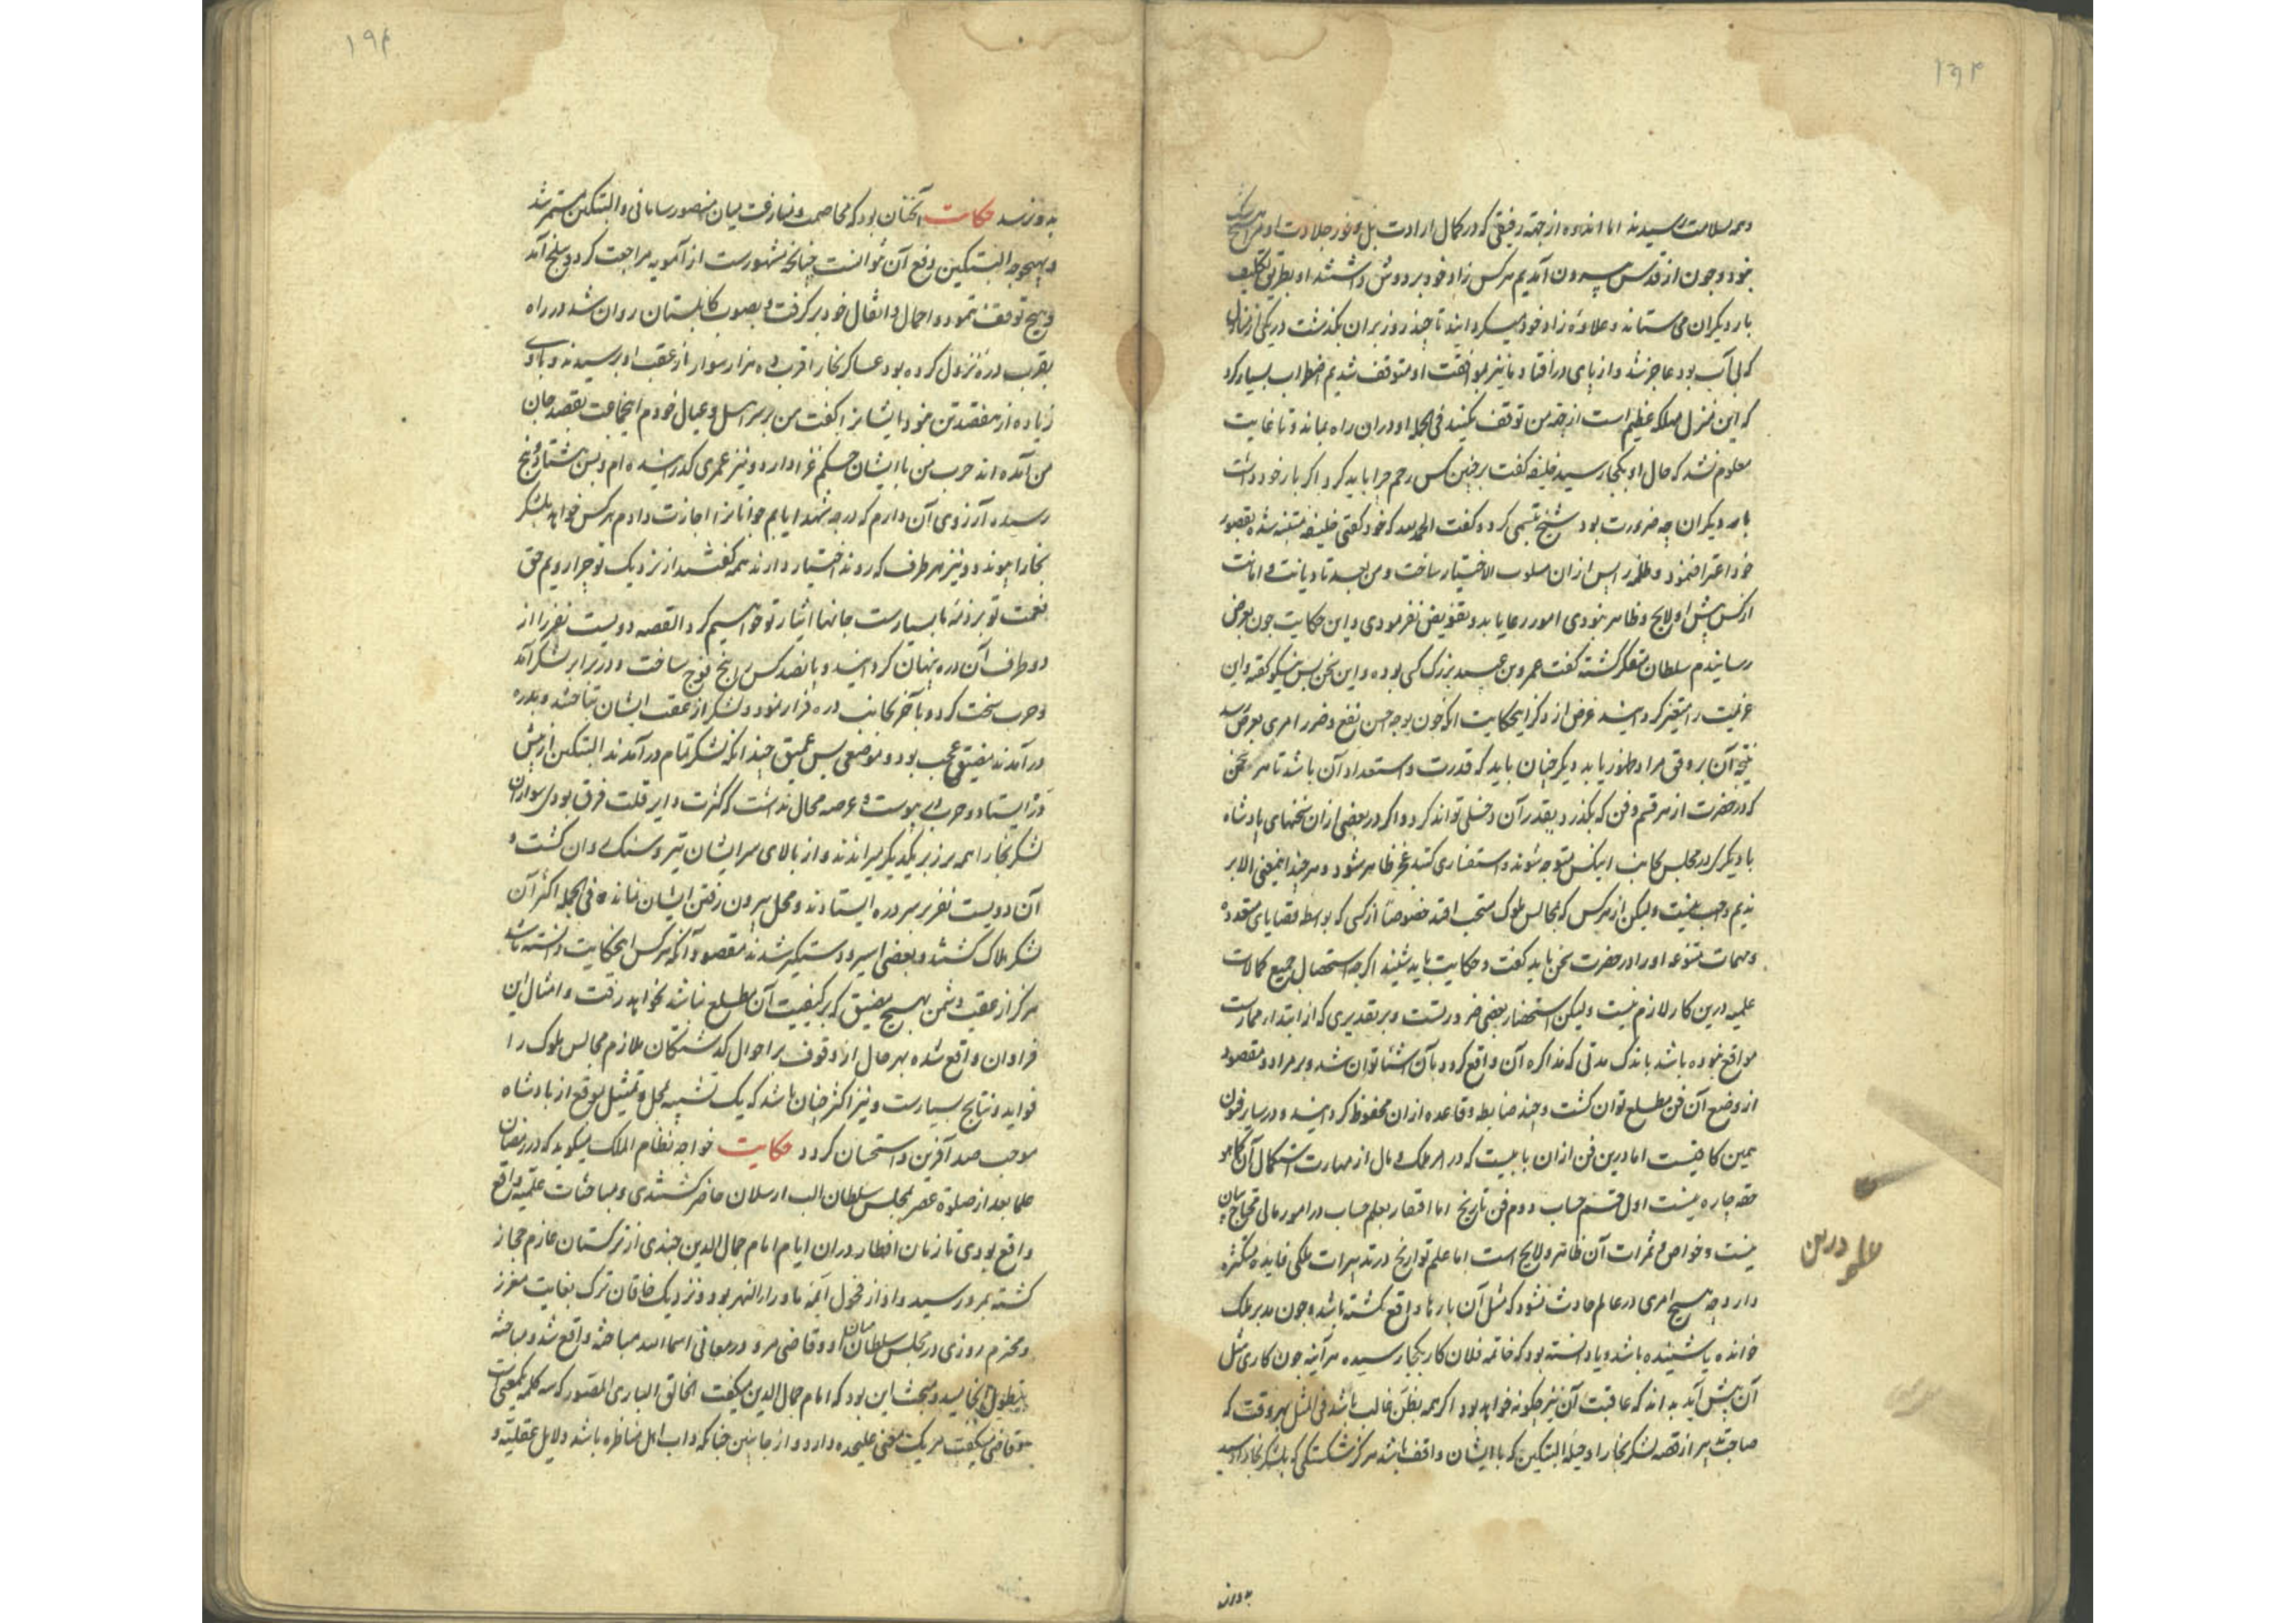 ۱۹۴
و همه بسلامت رسیدند اما اندوه از جهة رفیقی که در کمال ارادت بل وفور جلادت او
نمود و چون از قدس بیرون آمدیم هر کس زاد خود بر دوش داشتند او بطریق تکلیف
بار دیگران می ستاند و علاوه زاد خود میگردانید تا چند روز بران بگذشت در یکی از منازل
که بی آب بود عاجز شد و از پای در افتاد ما نیز بموافقت او متوقف شدیم اضطراب بسیار کرد
که این منزل مهلکه عظیم است از جهة من توقف مکنید فی الجمله او دران راه بماند و تا غایت
معلوم نشد که حال او بکجا رسید خلیفه گفت بر چنین کس رحم چرا باید کرد اگر بار خود داشت
بار دیگران چه ضرورت بود شیخ تبسمی کرد و گفت الحمد لله که خود گفتی خلیفه متنبه شده بقصور
خود اعتراف نمود و ظلمه را پس ازان مسلوب الاختیار ساخت و من بعد تا دیانت و امانت
از کس پیش او لایح و ظاهر نبودی امور رعایا بدو تفویض نفرمودی و این حکایت چون بعرض
رسانیدم سلطان متفکر گشته گفت عمرو بن عبید بزرگ کسی بوده و این سخن بس نیکو گفته و این
عزیمت را متغیر گردانید غرض از ذکر اینحکایت آنکه چون بوجه حسن نفع و ضرر امری بعرض رسد
نتیجه آن بر وفق مراد ظهور یابد دیگر چنان باید که قدرت و استعداد آن باشد تا هر سخن
که در حضرت از هر قسم و فن که بگذرد بقدر آن دخلی تواند کرد و اگر در بعضی ازان سخنهای پادشاه
با دیگری در مجلس بجانب اینکس متوجه شوند و استفساری کنند عجز ظاهر نشود و هر چند اینمعنی الا بر
ندیم واجب نیست ولیکن از هر کس که بمجالس ملوک مستحب افتد خصوصا از کسی که بواسطه قضایای متعدده
و مهمات متنوعه او را در حضرت سخن باید گفت و حکایت باید شنید اگرچه استحصال جمیع کمالات
علمیه درین کار لازم نیست ولیکن استحضار بعضی ضرورتست و بر تقدیری که از ابتدا ممارست
مواقع نبوده باشد باندک مدتی که مذاکره آن واقع گردد بآن آشنا توان شد و بر مراد و مقصود
از وضع آن فن مطلع توان گشت و چند ضابطه و قاعده ازان محفوظ گردانید و در سایر فنون
همین کافیست اما درین فن ازان بابیست که در امر ملک و مال از مهارت استکمال آن کما هو
حقه چاره نیست اول قسم حساب دوم فن تاریخ اما افتقار بعلم حساب در امور مالی محتاج بیان
نیست و خواص و ثمرات آن ظاهر و لایح است اما علم تواریخ در تدبیرات ملکی فایده متکثره
دارد چه هیچ امری در عالم حادث نشود که مثل آن بارها واقع نگشته باشد و چون مدبر ملک
خوانده یا شنیده باشد و یا دانسته بود که خاتمه فلان کار بکجا رسیده هر آینه چون کاری مثل
آن پیش آید بداند که عاقبت آن نیز چگونه خواهد بود اگر همه بظن غالب باشد فی المثل بهر وقت که
صاحب تدبیر از قصه لشکر بخارا و حیله البتکین که با ایشان واقف باشد هرگز شکستگی که بلشکر بخارا رسید
بدو نرسد
۱۹۴
بدو نرسد حکایت آنچنان بود که مخاصمت و منازعت میان منصور سامانی و البتکین مستمر شد
و بهیچوجه البتکین دفع آن نتوانست چنانچه مشهورست از آمویه مراجعت کرد و ببلخ آمد
و هیچ توقف ننمود و احمال و اثقال خود بر گرفت و بصوب کابلستان روان شد در راه
بقرب دره نزول کرده بود عساکر بخارا قرب ده هزار سوار از عقب او برسیدند و با وی
زیاده از هفتصد تن نبود ایشانرا گفت من بر سر اهل و عیال خودم اینجماعت بقصد جان
من آمده اند حرب من با ایشان حکم غزا دارد و نیز عمری گذرانیده ام و بسن هشتاد و پنج
رسیده آرزوی آن دارم که درجه شهدا یابم جوانانرا اجازت دادم هر کس خواهد بلشکر
بخارا پیوندد و نیز هر طرف که روند اختیار دارند همه گفتند از نزدیک تو چرا رویم حق
نعمت تو بر ذمه ما بسیارست جانها ایثار تو خواهیم کرد القصه دویست نفر را از
دو طرف آن دره پنهان گردانید و پانصد کس را پنج فوج ساخت و در برابر لشکر آمد
و حرب سخت کرد و بآخر بجانب دره فرار نمود و لشکر از عقب ایشان بتاختند و بدره
در آمدند مضیقی عجب بود و موضعی بس عمیق چندانکه لشکر تمام در آمدند البتکین از پیش
در ایستاد و حرب در پیوست و عرصه مجال نداشت که کثرت را بر قلت فرق بودی سواران
لشکر بخارا همه بر زبر یکدیگر میراندند و از بالای سر ایشان تیر و سنگ روان گشت و
آن دویست نفر بر سر دره ایستادند و محل بیرون رفتن ایشان نماند فی الجمله اکثر آن
لشکر هلاک گشتند و بعضی اسیر و دستگیر شدند مقصود آنکه هر کس اینحکایت دانسته باشد
هرگز از عقب دشمن بهیچ مضیق که بر کیفیت آن مطلع نباشد نخواهد رفت و امثال این
فراوان واقع شده بهر حال از وقوف بر احوال گذشتگان ملازم مجالس ملوک را
فواید و نتایج بسیارست و نیز اکثر چنان باشد که یک تشبیه بمحل و تمثیل بموقع از پادشاه
موجب صد آفرین و استحسان گردد حکایت خواجه نظام الملک میگوید که در رمضان
علما بعد از صلوة عصر بمجلس سلطان الب ارسلان حاضر گشتندی و مباحثات علمیه واقع
واقع بودی تا زمان افطار دران ایام امام جمال الدین جندی از ترکستان عازم حجاز
گشته بمرو رسید و او از فحول ائمه ماوراء النهر بود و نزدیک خاقان ترک بغایت معزز
و محترم روزی در مجلس سلطان میان او و قاضی مرو در معانی اسماء الله مباحثه واقع شد و مباحثه
بتطویل انجامید و مبحث این بود که امام جمال الدین میگفت الخالق الباری المصور که سه کلمه بیکمعنی است
و قاضی میگفت هر یک معنی علیحده دارد و از جانبین چنانکه داب اهل مناظره باشد دلایل عقلیه و